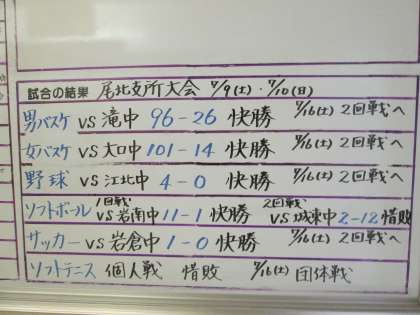 試合の結果 尾北支所大会 7/9(土)・7/10(日)
男バスケ VS 滝中 96-26 快勝 7/16(土) 2回戦へ
女バスケ VS 大口中 101-14 快勝 7/16(土) 2回戦へ
野球 VS 江北中 4-0 快勝 7/16(土) 2回戦へ
ソフトボール 1回戦 VS 岩南中 11-1 快勝 2回戦 VS 城東中 2-12 惜敗
サッカー VS 岩倉中 1-0 快勝 7/16(土) 2回戦へ
ソフトテニス 個人戦 惜敗 7/16(土) 団体戦